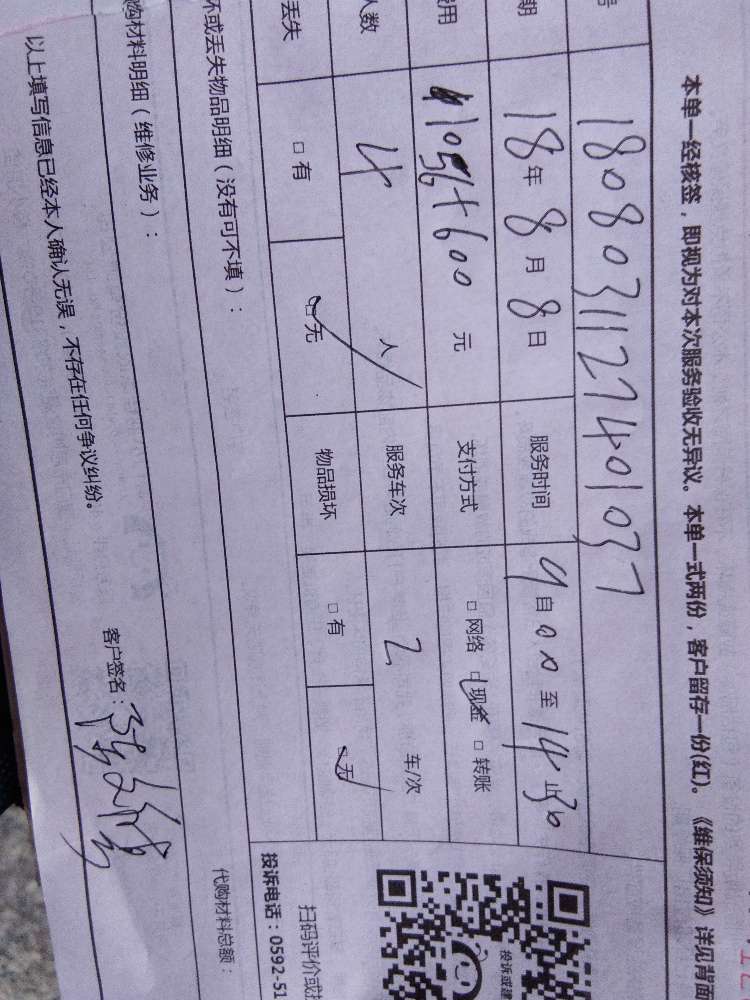 本单一经核签，即视为对本次服务验收无异议。本单一式两份，客户留存一份(红)。《维保须知》详见背面
号 1808031127401037
期 18年8月8日 服务时间 9自00至14止30
费用 1056+600元 支付方式 □网络 □现金 □转账
人数 4人 服务车次 2车/次
丢失 □有 □无 物品损坏 □有 □无
坏或丢失物品明细（没有可不填）：
购材料明细（维修业务）： 代购材料总额：
以上填写信息已经本人确认无误，不存在任何争议纠纷。 客户签名：
投诉或建
扫码评价或投
投诉电话：0592-51